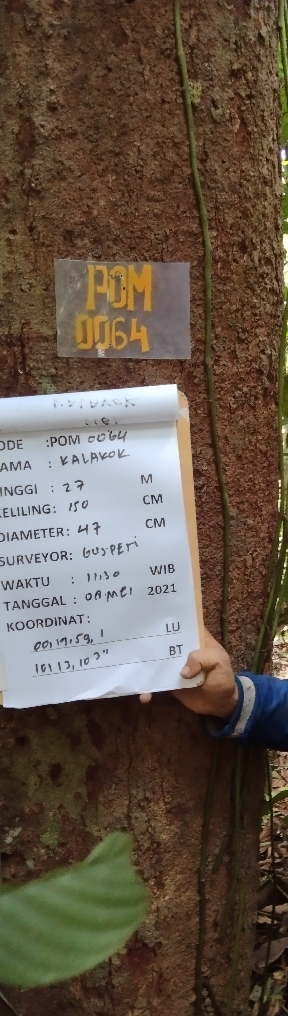 POM
0064
ODE :POM 0064
AMA : KALAKOK
INGGI : 27 M
KELILING: 150 CM
DIAMETER: 47 CM
SURVEYOR: GUSPERI
WAKTU : 11:30 WIB
TANGGAL : 08 MEI 2021
KOORDINAT:
00,17,59, 1 LU
101,13,103" BT